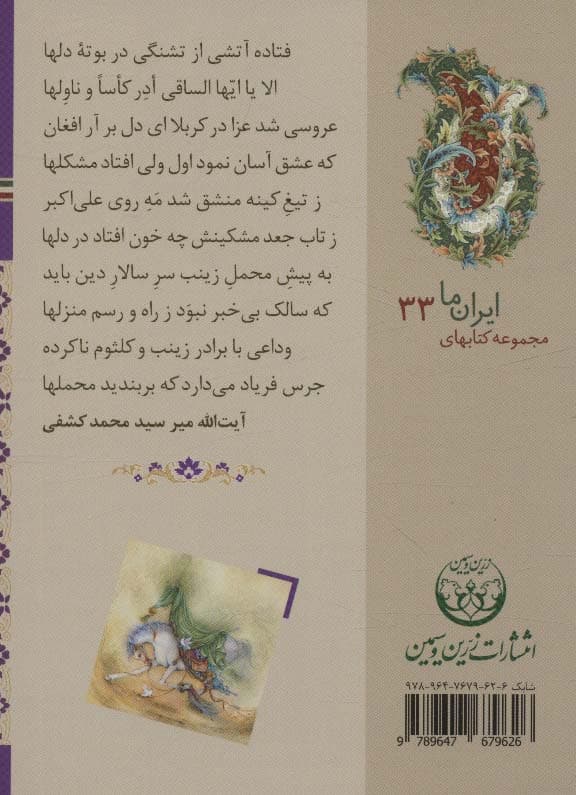 فتاده آتشی از تشنگی در بوتهٔ دلها
الا یا ایّها الساقی أدِر کأساً و ناوِلها
عروسی شد عزا در کربلا ای دل بر آر افغان
که عشق آسان نمود اول ولی افتاد مشکلها
ز تیغِ کینه منشق شد مَهِ روی علی‌اکبر
ز تاب جعد مشکینش چه خون افتاد در دلها
به پیشِ محملِ زینب سرِ سالارِ دین باید
که سالک بی‌خبر نبوَد ز راه و رسم منزلها
وداعی با برادر زینب و کلثوم ناکرده
جرس فریاد می‌دارد که بربندید محملها
آیت‌الله میر سید محمد کشفی
ایران ما ۳۳
مجموعه کتابهای
زرین و سیمین
انتشارات زرّین و سیمین
شابک ۹۷۸-۹۶۴-۷۶۷۹-۶۲-۶
9 789647 679626